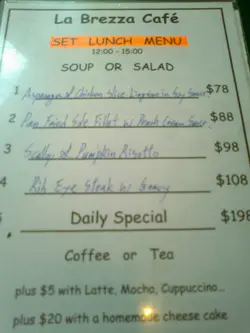 La Brezza Café
SET LUNCH MENU
12:00 - 15:00
SOUP OR SALAD
1 Asparagus & Chicken Slice Linguine in Soy Sauce $78
2 Pan Fried Sole Fillet w/ Lemon Sauce $88
3 Scallop & Pumpkin Risotto $98
4 Rib Eye Steak w/ Gravy $108
5 Daily Special $198
Coffee or Tea
plus $5 with Latte, Mocha, Cuppucino...
plus $20 with a homemade cheese cake